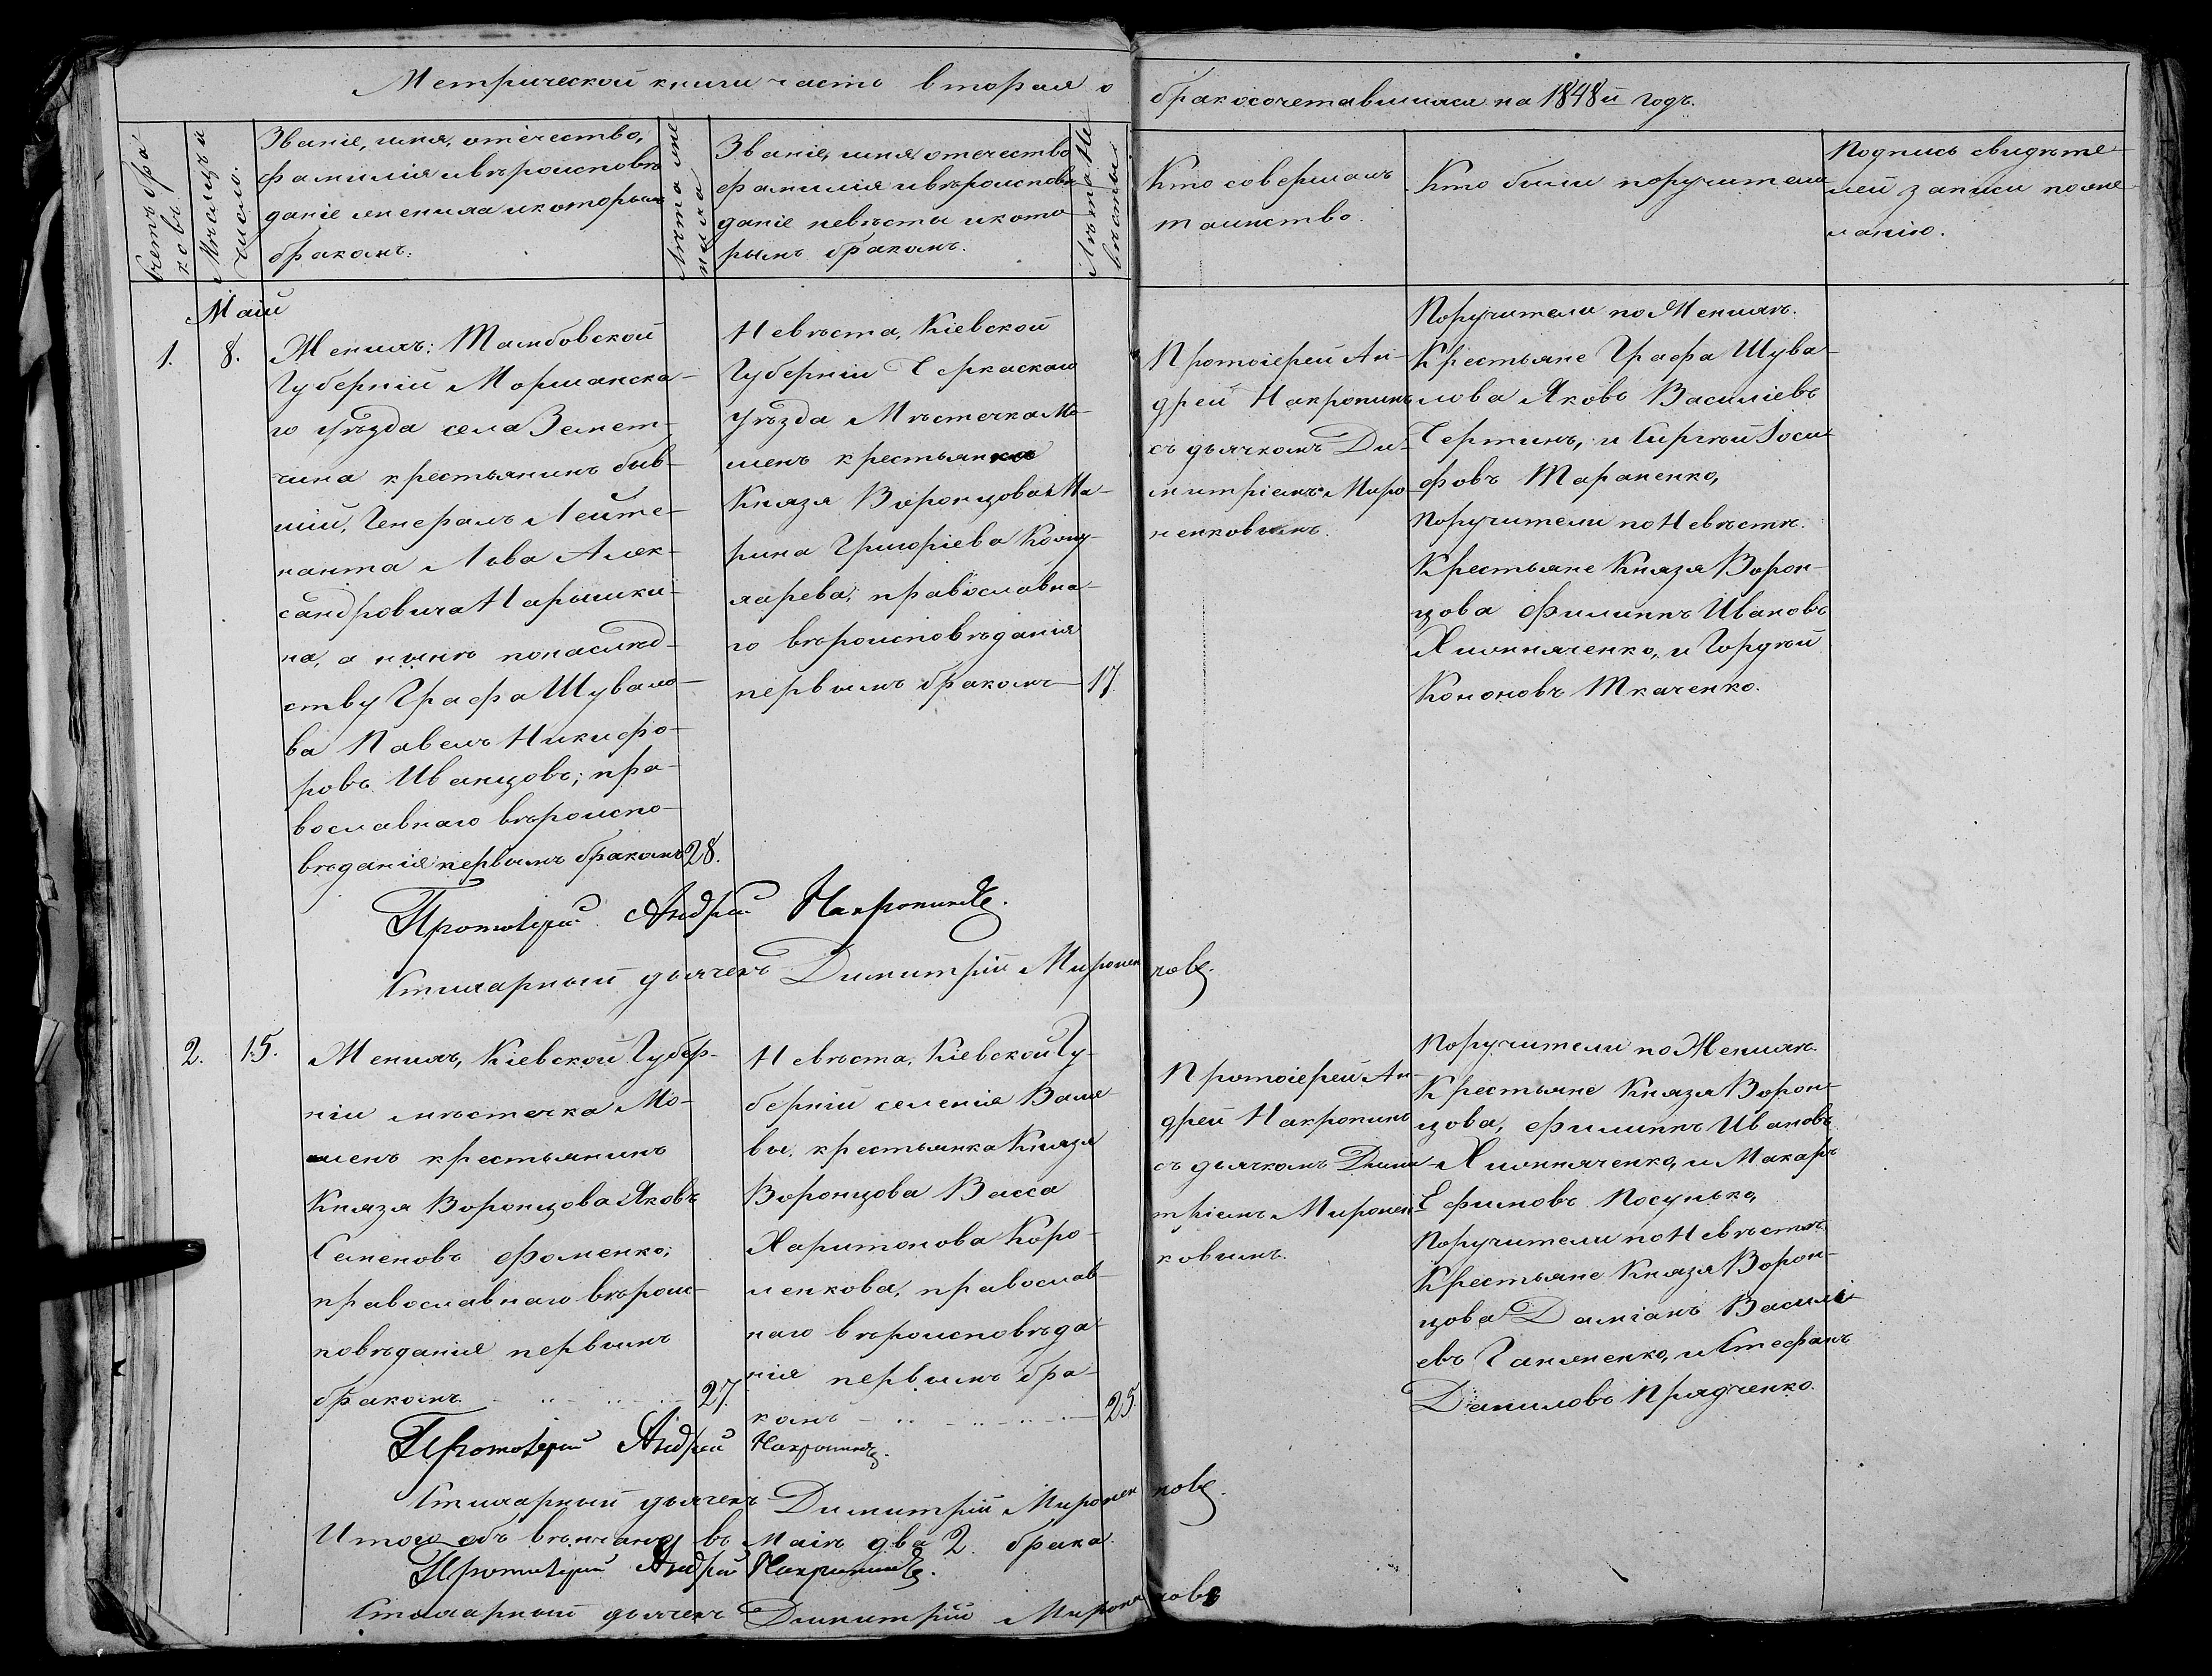 Метрической книги часть вторая о бракосочетавшихся на 1848й годъ.
Счетъ бра-
ковъ.
Мѣсяцъ и
число.
Званіе, имя, отчество,
фамилія и вѣроисповѣ
даніе жениха и которымъ
бракомъ.
Лѣта же
ниха
Званіе, имя отечество
фамилія и вѣроисповѣ
даніе невѣсты и кото
рымъ бракомъ.
Лѣта Не
вѣсты.
Кто совершалъ
таинство.
Кто были поручители
Подпись свидѣте-
лей записи по же-
ланію.
Маій
1.
8.
Женихъ: Тамбовской
Губерніи Моршанска-
го уѣзда села Земет-
чина крестьянинъ быв-
шій, Генералъ Лейте-
нанта Льва Алек-
сандровича Нарышки-
на, а нынѣ по наслѣд-
ству Графа Шувало-
ва Павелъ Никифо-
ровъ Иванцовъ; пра-
вославнаго вѣроиспо-
вѣданія первымъ бракомъ 28.
Невѣста, Кіевской
Губерніи Черкаскаго
уѣзда Мѣстечка Мо-
шенъ крестьянка
Князя Воронцова Ма-
рина Григоріева Кошу-
ларева, православна-
го вѣроисповѣданія
первымъ бракомъ 17.
Протоіерей Ан-
дрей Накропинъ
съ дьячкомъ Ди-
митріемъ Миро-
ненковымъ.
Поручители по Женихѣ.
Крестьяне Графа Шува-
лова Яковъ Василіевъ
Чертинъ, и Сиргѣй Іоси-
фовъ Тараненко,
Поручители по Невѣстѣ.
Крестьяне Князя Ворон-
цова Филиппъ Ивановъ
Хипняченко, и Гордѣй
Кононовъ Ткаченко.
Протоіерей Андрей Накропинъ.
Стихарный дьячекъ Димитрій Мироненковъ.
2.
15.
Женихъ, Кіевской Губер-
ніи мѣстечка Мо-
шенъ крестьянинъ
Князя Воронцова Яковъ
Семеновъ Фоменко;
православнаго вѣроис-
повѣданія первымъ
бракомъ. 27.
Невѣста, Кіевской Гу-
берніи селенія Валя
вы, крестьянка Князя
Воронцова Васса
Харитонова Коро-
ленкова, православ-
наго вѣроисповѣда-
нія первымъ бра-
комъ 25.
Протоіерей Ан-
дрей Накропинъ
съ дьячкомъ Дими-
тріемъ Миронен-
ковымъ.
Поручители по Женихѣ.
Крестьяне Князя Ворон-
цова, Филиппъ Ивановъ
Хипняченко, и Макаръ
Ефимовъ Посунько,
Поручители по Невѣстѣ.
Крестьяне Князя Ворон-
цова Даміанъ Василі-
евъ Ганженко, и Стефанъ
Даниловъ Прядченко.
Протоіерей Андрей Накропинъ.
Стихарный дьячекъ Димитрій Мироненковъ.
Итого объ вѣнчано въ Маіѣ два 2 брака.
Протоіерей Андрей Накропинъ.
Стихарный дьячекъ Димитрій Мироненковъ